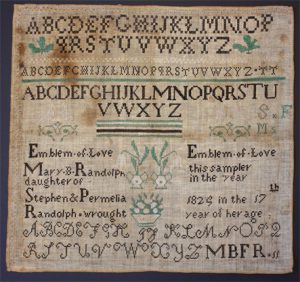 ABCDEFGHIJKLMNOP
QRSTUVWXYZ
ABCDEFGHIJKLMNOPQRSTUVWXYZ·TT
ABCDEFGHIJKLMNOPQRSTU
VWXYZ
S·F
Ms
Emblem·of·Love
Mary·B·Randolph
daughter of
Stephen & Permelia
Randolph·wrought
Emblem·of·Love
this sampler
in the year
1824 in the 17th
year of her age
ABCDEFGH IJ KLMNOPQ
RSTUVWXYZ MBFR·